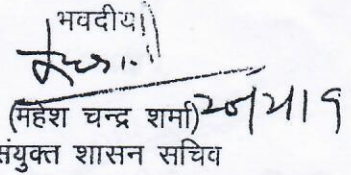 भवदीय।
(महेश चन्द्र शर्मा)
संयुक्त शासन सचिव